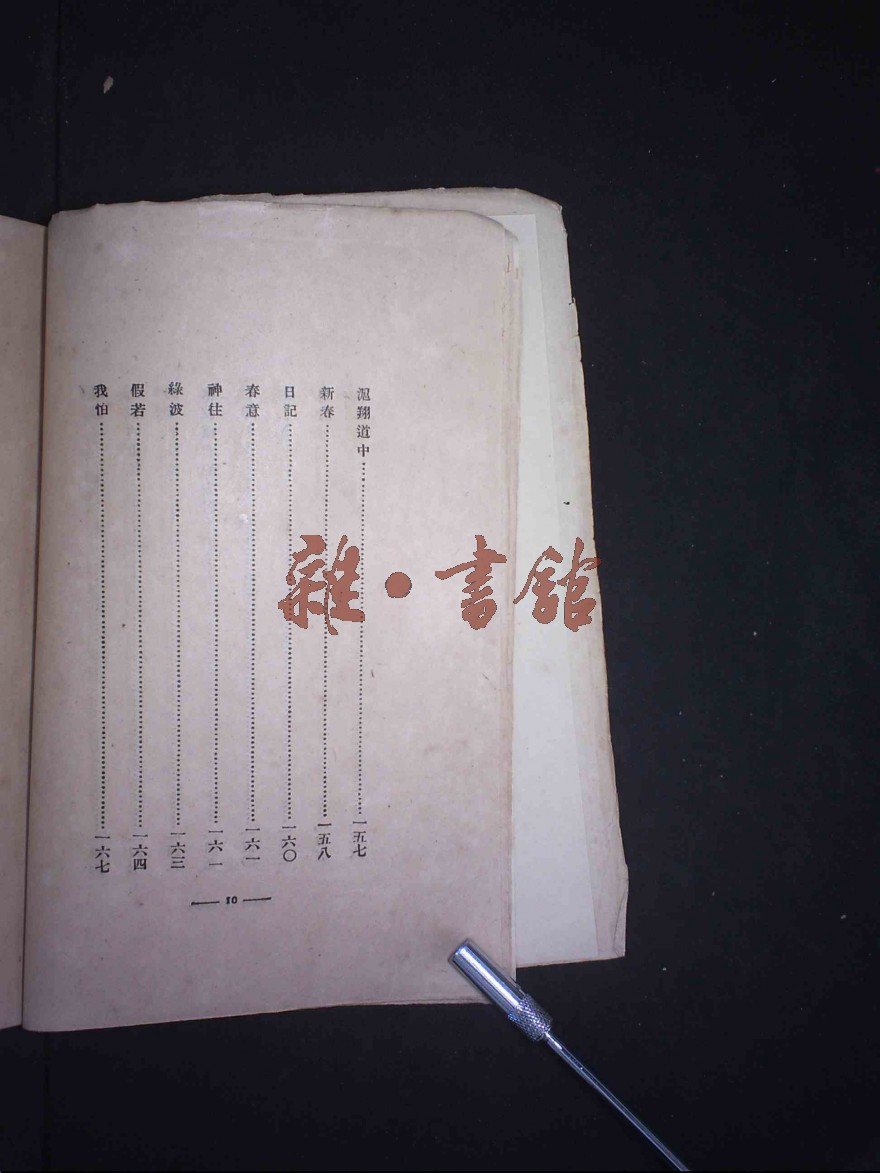 滬翔道中……一五七
新春……一五八
日記……一六〇
春意……一六一
神往……一六一
綠波……一六三
假若……一六四
我怕……一六七
— 10 —
雜·書館